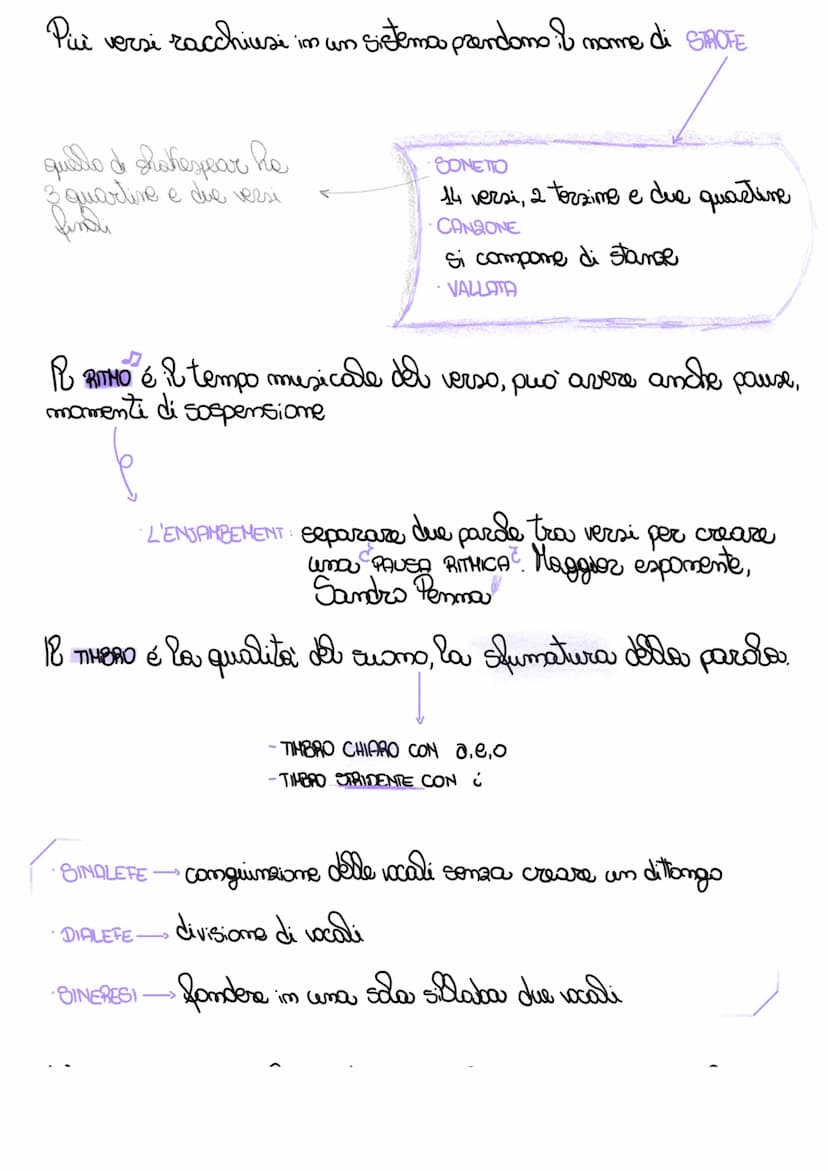 Più versi racchiusi in un sistema prendono il nome di STROFE
quello di shakespear ha
3 quartine e due versi
finali
· SONETTO
14 versi, 2 terzine e due quartine
· CANZONE
si compone di stanze
· VALLATA
Il RITMO é il tempo musicale del verso, può avere anche pause,
momenti di sospensione
· L'ENJAMBEMENT: separare due parole tra versi per creare
una "PAUSA RITMICA". Maggior esponente,
Sandro Penna
Il TIMBRO é la qualità del suono, la sfumatura della parola.
- TIMBRO CHIARO CON a,e,o
- TIMBRO STRIDENTE CON i
· SINALEFE → congiunzione delle vocali senza creare un dittongo
· DIALEFE → divisione di vocali
· SINERESI → fondere in una sola sillaba due vocali